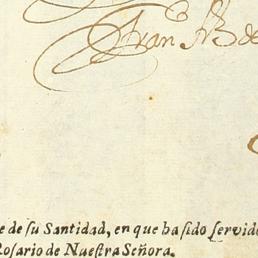 Fran.co
de
e de ſu Santidad, en que ha ſido ſervido
Roſario de Nueſtra Señora.